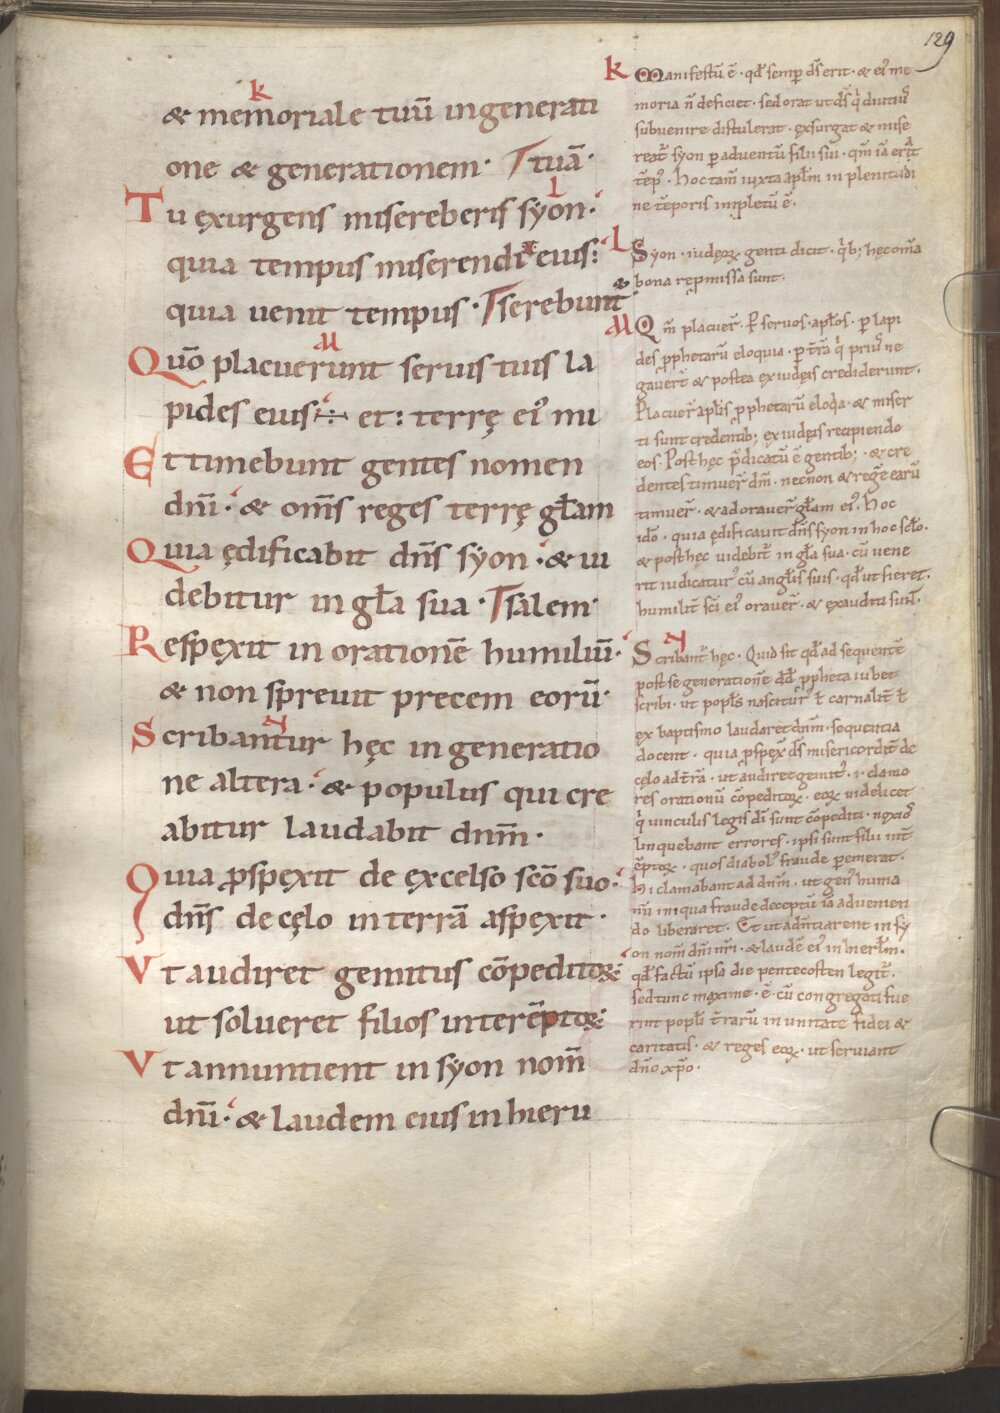 129
k
& memoriale tuũ in generati
one & generationem · tuã ·
L
Tu ęxurgens misereberis syon ·
quia tempus miserendi eius :
quia uenit tempus · serebunt &
M
Quō placuerunt seruis tuis la
pides eius ÷ et : terrę ei᾽ mi
Et timebunt gentes nomen
dñi · & oms̄ reges terrę gl̄am
Quia ędificabit dñs syon · & ui
debitur in gl̄a sua · salem ·
Respęxit in orationē humiliū ·
& non spreuit precem eorū ·
N
Scribantur hęc in generatio
ne altera · & populus qui cre
abitur laudabit dnm̄ ·
Quia ꝓspęxit de ęxcelso scō suo ·
dñs de cęlo in terrā aspęxit ·
Vt audiret gemitus cōpeditoꝝ :
ut solueret filios interēptoꝝ :
Vt annuntient in syon nom̄
dñi · & laudem eius in hieru
k Manifestū ē · qđ semp ds̄ erit · & ei᾽ me
moria n̄ deficiet · sed orat ut ds̄ q̇ diuti᾽
subuenire distulerat · ęxsurgat & mise
reat᾽ syon p aduentū filii sui · qm̄ iā erit
tēp᾽ · Hoc tam̄ iuxta apl̄m in plenitudi
ne tēporis impletū ē ·
L Syon · iudęoꝝ genti dicit · q̇b; hęc om̄a
bona rep̱missa sunt ·
M Qm̄ placuer̄ · P seruos · apl̄os · p lapi
des ꝓphetarū eloquia · p tr̄ā q̇ pri᾽ ne
gauer̄t & postea ęx iudęis crediderunt ·
Placuer̄ apl̄is ꝓphetarū eloq̇a · & miser
ti sunt credentib; ęx iudęis recipiendo
eos · Post hęc p̄dicatū ē gentib; · & cre
dentes timuer̄ dnm̄ · necnon & regē earū
timuer̄ · & adorauer̄ gl̄am ei᾽ · Hoc
id̄o · quia ędificauit dñs syon in hoc scl̄o ·
& post hęc uidebit᾽ in gl̄a sua · cū uene
rit iudicatur᾽ cū angl̄is suis · qđ ut fieret ·
humilit̄ sc̄i ei᾽ orauer̄ · & ęxauditi sunt ·
N
Scribant᾽ hęc · Quid sit qđ ad sequentē
post se generationē dđ ꝓpheta iubet
scribi · ut popl̄s nascitur᾽ ł carnalit̄ ł
ęx baptismo laudaret dnm̄ · sequentia
docent · quia ꝓspęx̄ ds̄ misericordit̄ de
cęlo ad tr̄ā · ut audiret gemit᾽ · i · clamo
res orationū cōpeditoꝝ · eoꝝ uidelicet
q̇ uinculis legis di̅ sunt cōpediti · noxios
linquebant errores · ipsi sunt filii int̄
ēptoꝝ · quos diabol᾽ fraude pemerat ·
hi clamabant ad dnm̄ · ut gen᾽ huma
nū iniqua fraude deceptū iā aduenien
do liberaret · Et ut adn̄tiarent in sy
on nom̄ dñi nr̄i · & laudē ei᾽ in hierl̄m ·
qđ factū ipsa die pentecosten legit᾽ ·
sed tunc maxime · ē · cū congregati fue
rint popl̄i tr̄arū in unitate fidei &
caritatis · & reges eoꝝ · ut seruiant
dño xp̄o ·